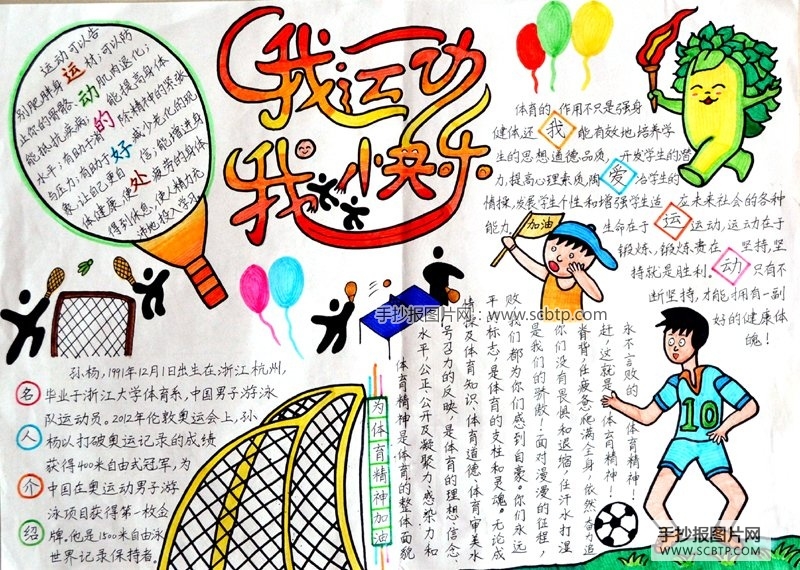 我运动
我快乐
运动可以告
别肥胖身材;可以防
止你的骨骼肌肉退化;
能抵抗疾病;能提高身体
水平;有助于消除精神的紧张
与压力;有助于减少老化的现
象;让自己更自信;能增进身
体健康;使疲劳的身体
得到休息,使人精力充
沛地投入学习。
运动的好处
体育的作用不只是强身
健体,还我能有效地培养学
生的思想道德品质,开发学生的潜
力,提高心理素质,陶爱冶学生的
情操,发展学生个性和增强学生适应在未来社会的各种
能力。
生命在于运运动,运动在于
锻炼,锻炼贵在坚持,坚
持就是胜利。动只有不
断坚持,才能拥有一副
好的健康体
魄!
加油
手抄报图片网:www.scbtp.com
名人介绍
孙杨,1991年12月1日出生在浙江杭州,
毕业于浙江大学体育系,中国男子游泳
队运动员。2012年伦敦奥运会上,孙
杨以打破奥运记录的成绩
获得400米自由式冠军,为
中国在奥运动男子游
泳项目获得第一枚金
牌。他是1500米自由泳
世界记录保持者。
为体育精神加油
体育精神是体育的整体面貌
水平,公正、公开及凝聚力、感染力和
号召力的反映,是体育的理想、信念、
情操及体育知识、体育道德、体育审美水
平标志,是体育的支柱和灵魂。无论成
败,我们都为你们感到自豪。你们永远
是我们的骄傲!面对漫漫的征程,
你们没有畏惧和退缩,任汗水打湿
脊背,任疲惫爬满全身,依然奋力追
赶,这就是——体育精神!
永不言败的——体育精神!
10
手抄报图片网
WWW.SCBTP.COM